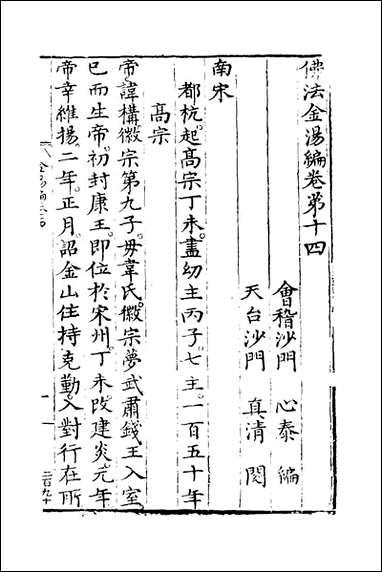 佛法金湯編卷第十四
會稽沙門　心泰　編
天台沙門　真清　閱
南宋
都杭。起高宗丁未。盡幼主丙子。七主。一百五十年
高宗
帝諱構徽宗第九子。毋韋氏。徽宗夢武肅錢王入室
已而生帝。初封康王。即位於宋州。丁未改建炎。元年
帝幸維揚。二年。正月。詔金山住持克勤。入對行在所